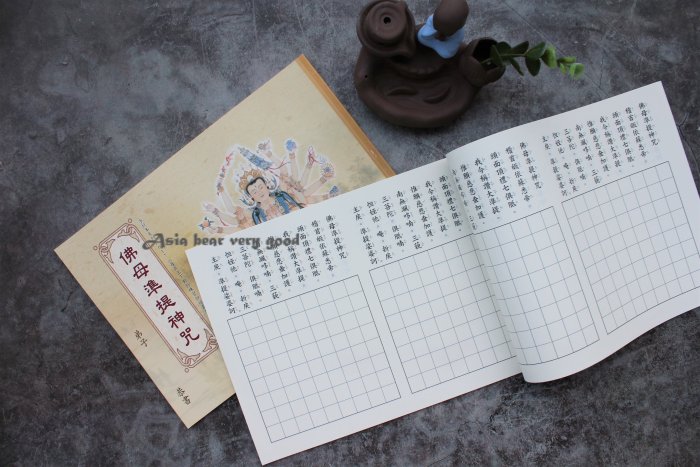 佛母準提神咒
弟子
恭書
Asia bear very good
佛母準提神咒
稽首皈依蘇悉帝
頭面頂禮七俱胝
我今稱讚大準提
惟願慈悲垂加護
南無颯哆喃。三藐
三菩陀。俱胝喃。
怛姪他。唵。折戾
主戾。準提娑婆訶
佛母準提神咒
稽首皈依蘇悉帝
頭面頂禮七俱胝
我今稱讚大準提
惟願慈悲垂加護
佛母準提神咒
稽首皈依蘇悉帝
頭面頂禮七俱胝
我今稱讚大準提
惟願慈悲垂加護
南無颯哆喃。三藐
三菩陀。俱胝喃。
怛姪他。唵。折戾
主戾。準提娑婆訶